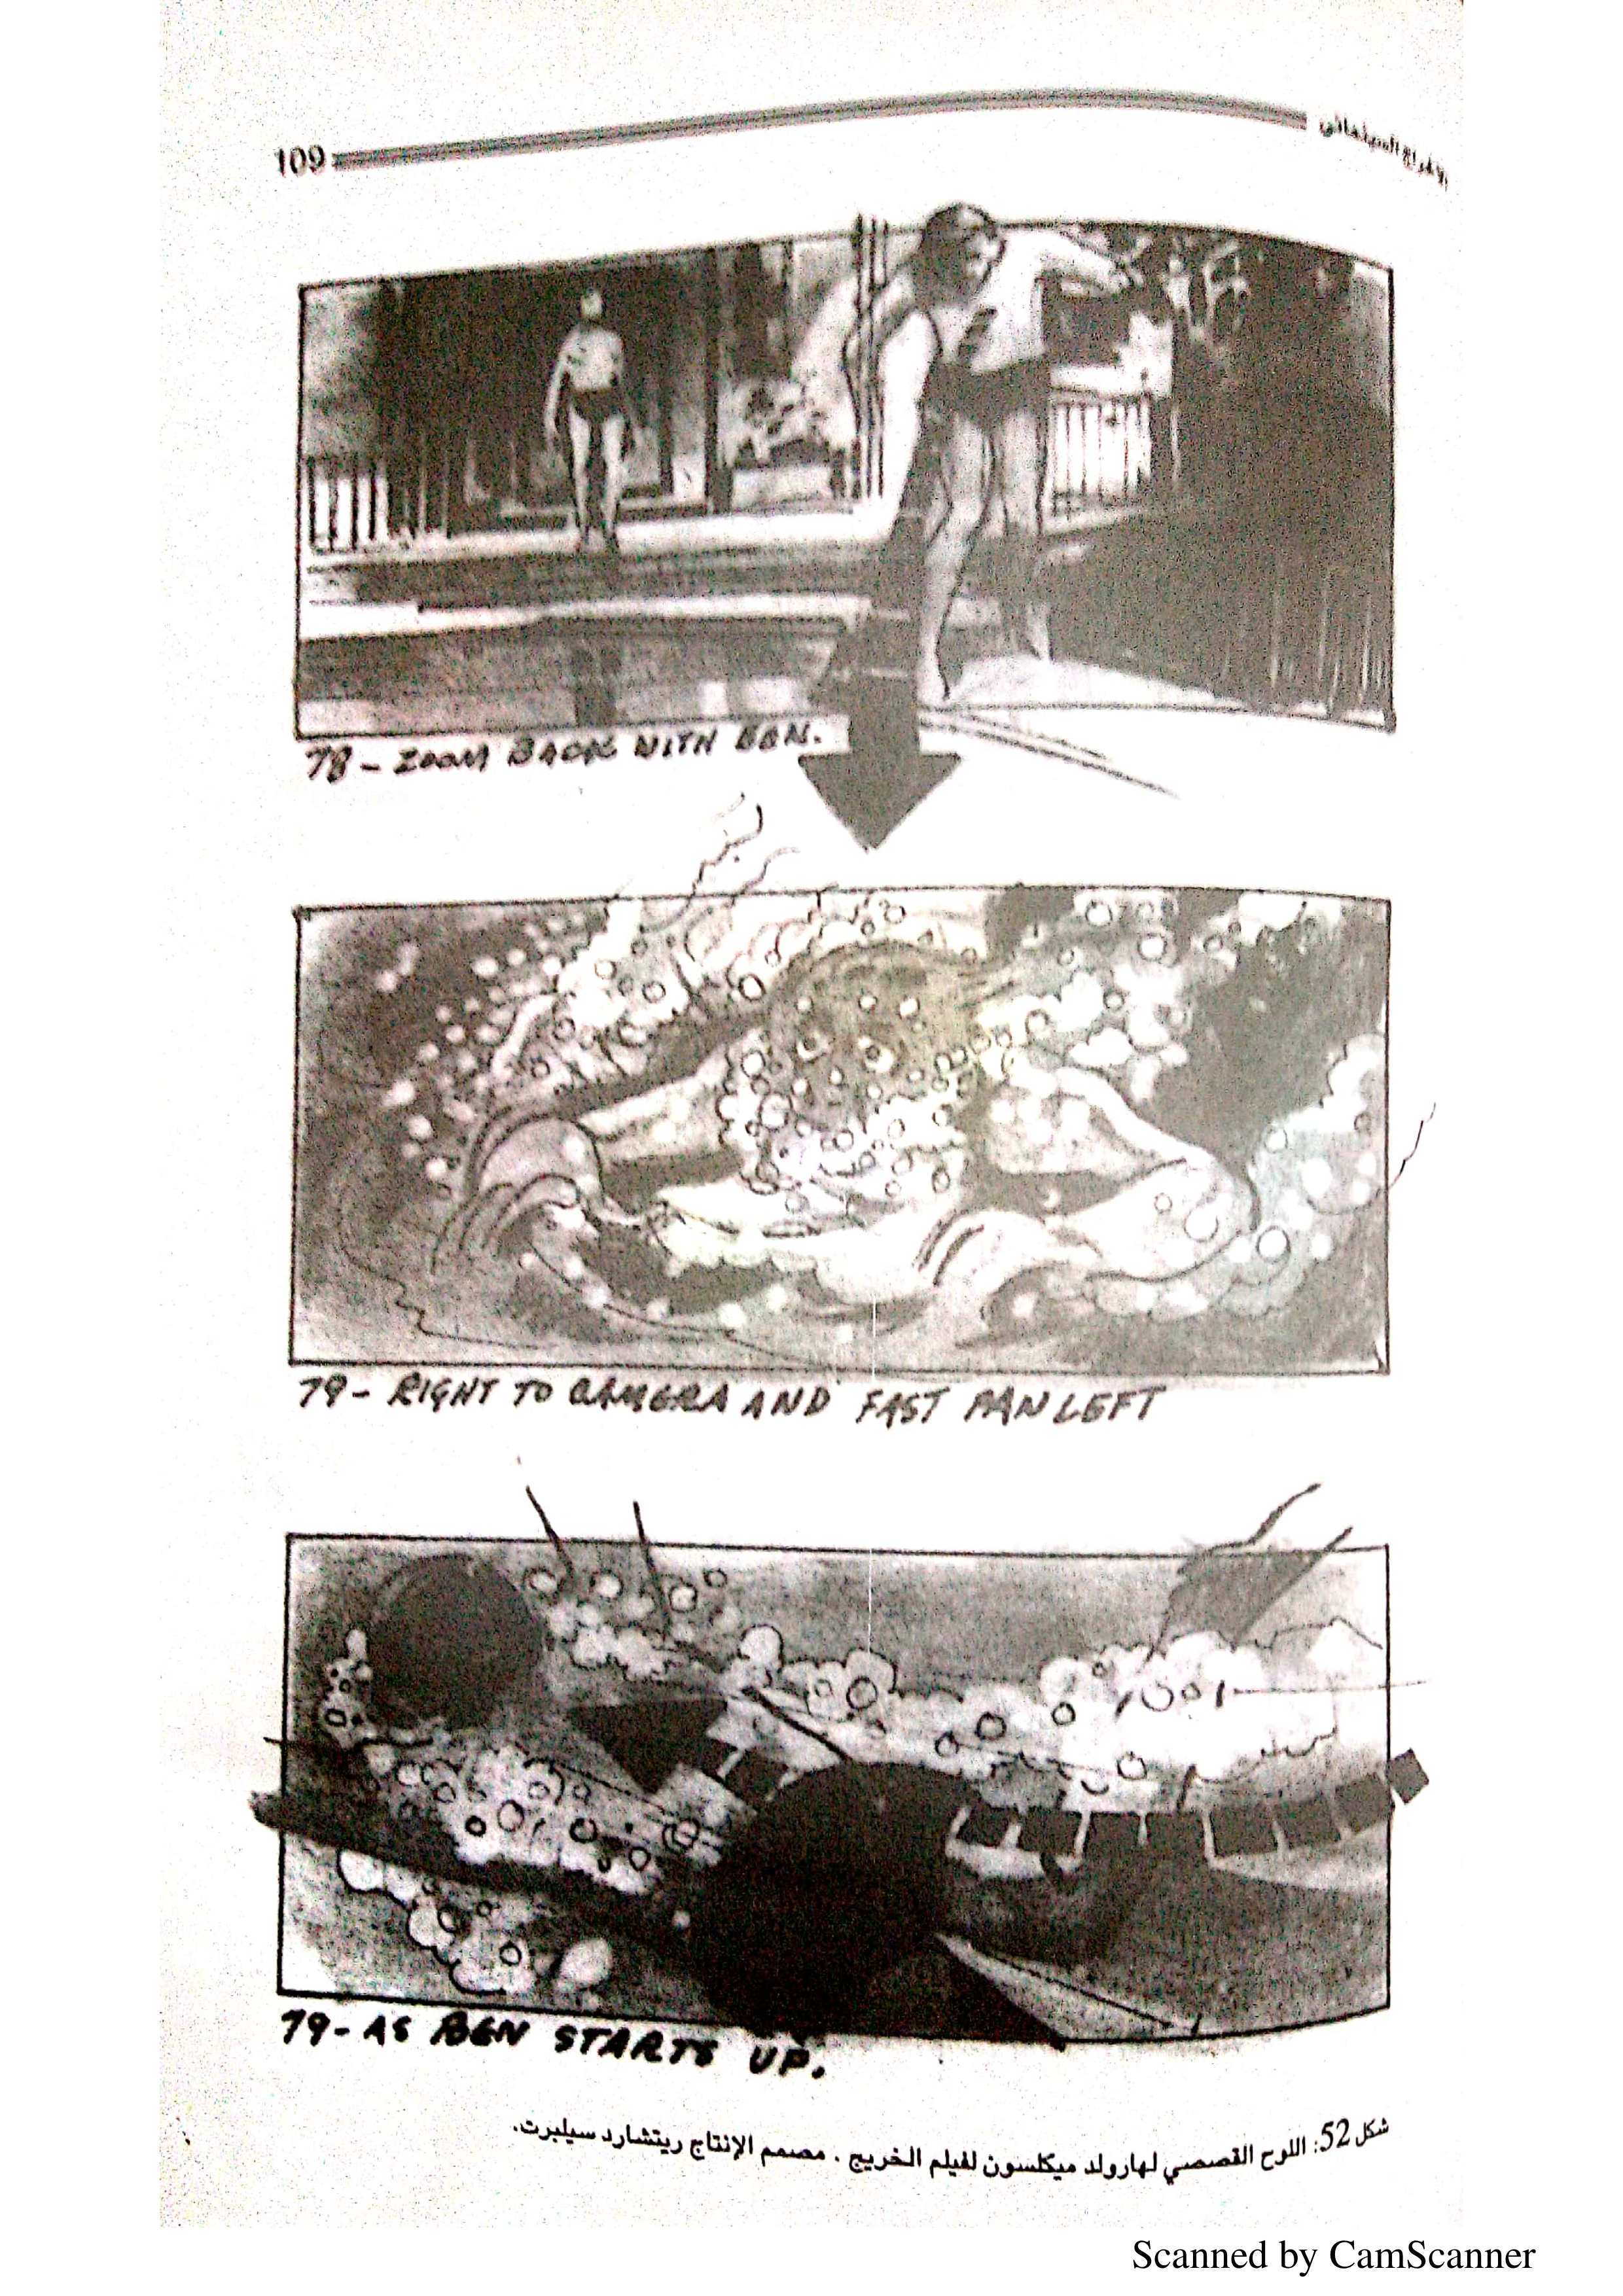 109
الإخراج السينمائي
78 - ZOOM BACK WITH BEN.
79 - RIGHT TO CAMERA AND FAST PAN LEFT
79 - AS BEN STARTS UP.
شكل 52: اللوح القصصي لهارولد ميكلسون لفيلم الخريج . مصمم الإنتاج ريتشارد سيلبرت.
Scanned by CamScanner